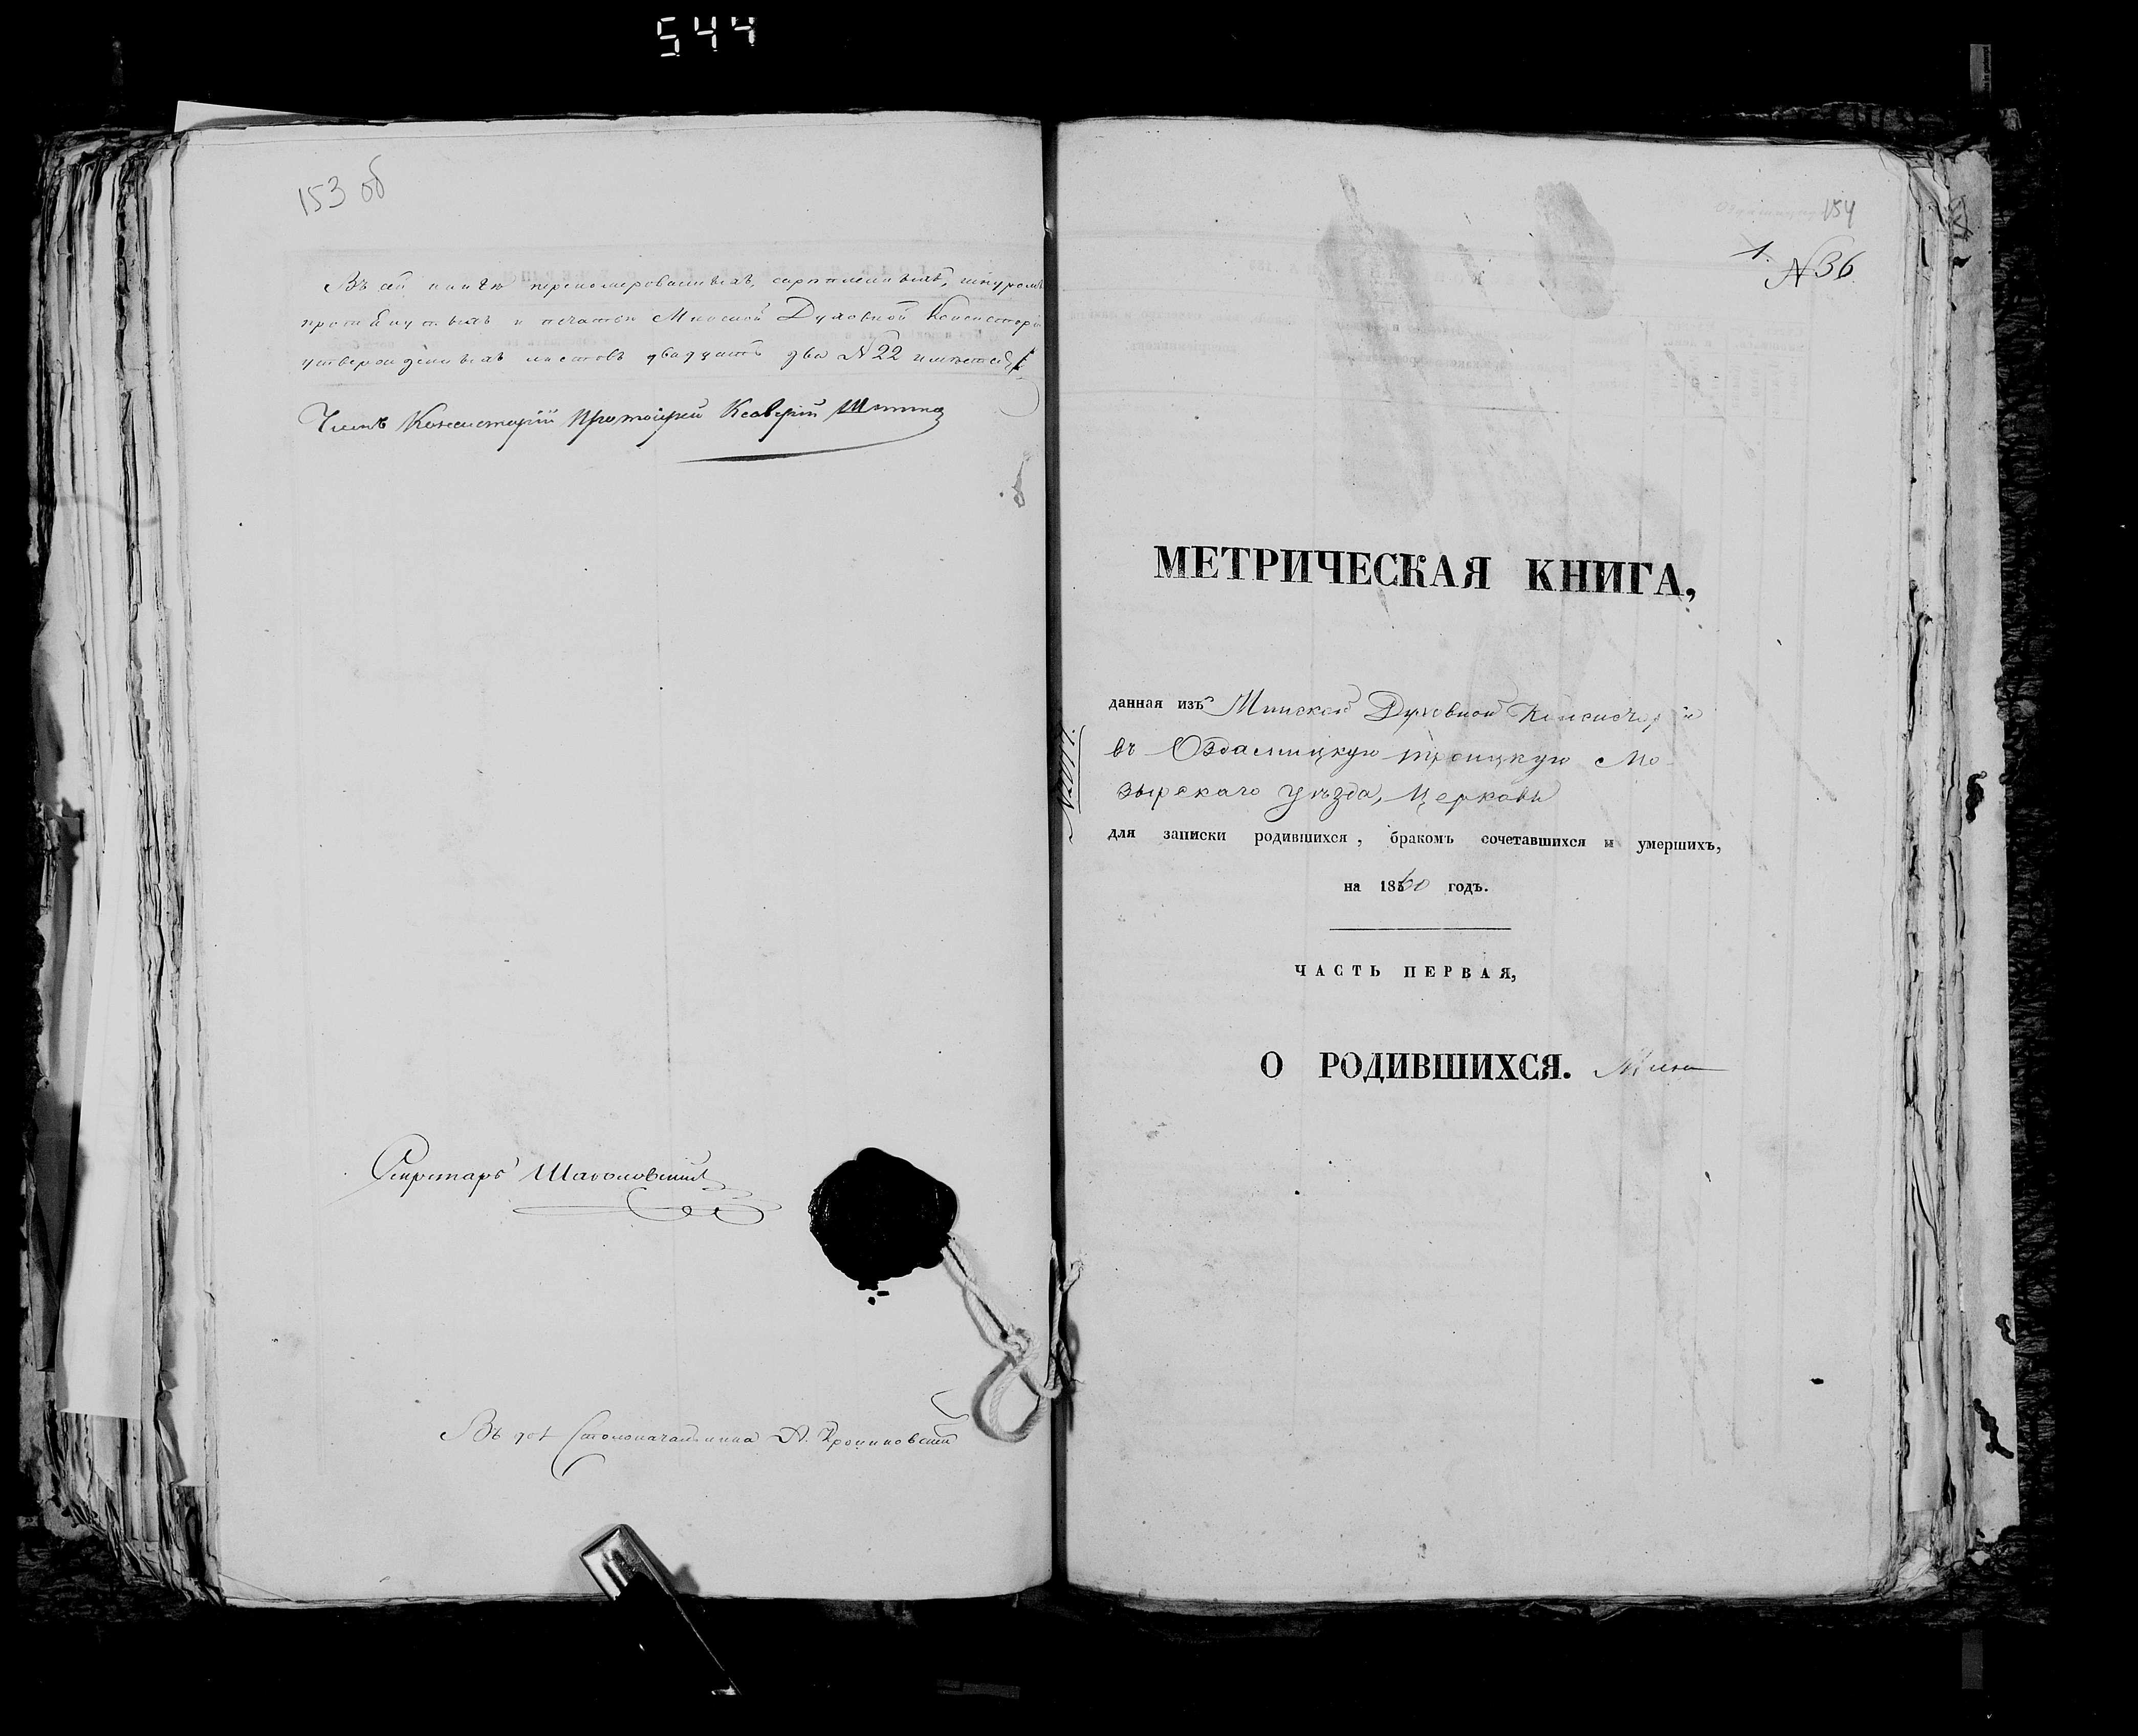 544
153 об
Въ сей книгѣ перенумерованныхъ, скрѣпленныхъ, шнуромъ
протянутыхъ и печатью Минской Духовной Консисторіи
утвержденныхъ листовъ двадцать два N 22 имѣется
Членъ Консисторіи Протоіерей Ксаверій
Секретарь
Въ дол Столоначальника А.
154
1. N 36
МЕТРИЧЕСКАЯ КНИГА,
данная изъ Минской Духовной Консисторіи
въ Оздамицкую Троицкую Мо-
зырскаго уѣзда, Церковь
для записки родившихся, бракомъ сочетавшихся и умершихъ,
на 1860 годъ.
ЧАСТЬ ПЕРВАЯ,
О РОДИВШИХСЯ.